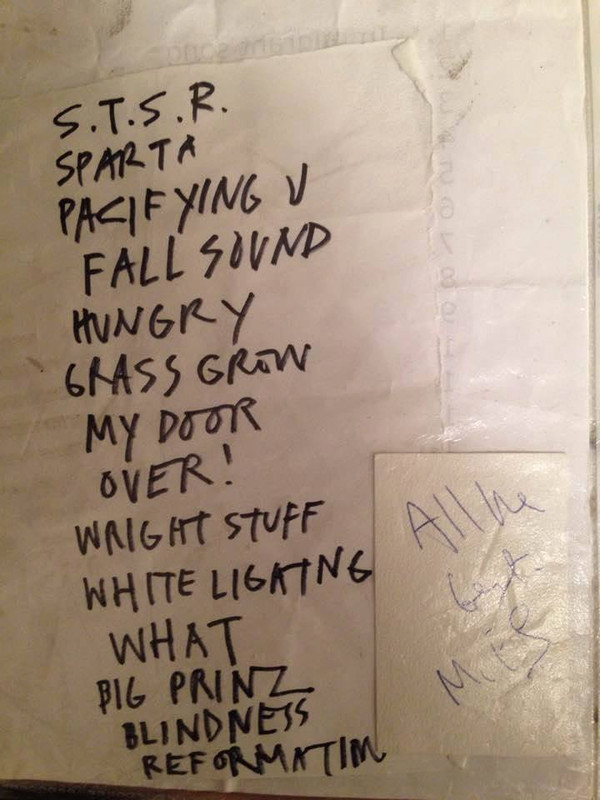 S.T.S.R.
SPARTA
PACIFYING J
FALL SOUND
HUNGRY
GRASS GROW
MY DOOR
OVER!
WRIGHT STUFF
WHITE LIGHTNG
WHAT
BIG PRINZ
BLINDNESS
REFORMATION
All the
best